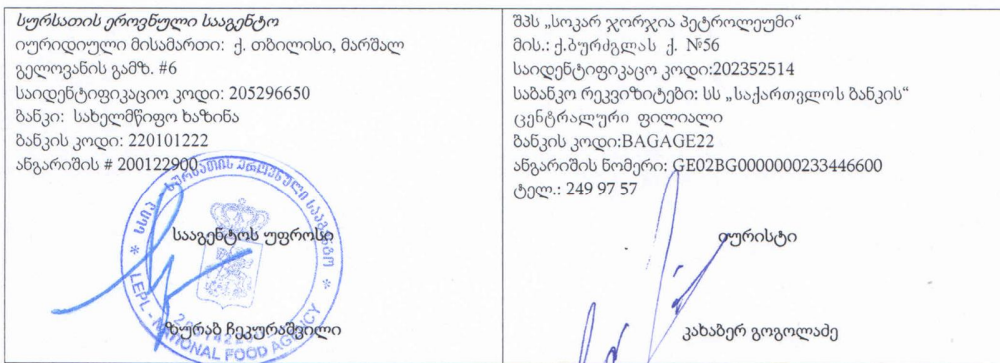 სურსათის ეროვნული სააგენტო
იურიდიული მისამართი: ქ. თბილისი, მარშალ
გელოვანის გამზ. #6
საიდენტიფიკაციო კოდი: 205296650
ბანკი: სახელმწიფო ხაზინა
ბანკის კოდი: 220101222
ანგარიშის # 200122900
სსიპ - სურსათის ეროვნული სააგენტო
სააგენტოს უფროსი
LEPL - NATIONAL FOOD AGENCY
ზურაბ ჩეკურაშვილი
შპს „სოკარ ჯორჯია პეტროლეუმი“
მის.: ქ.ბურძგლას ქ. №56
საიდენტიფიკაცო კოდი:202352514
საბანკო რეკვიზიტები: სს „საქართვლოს ბანკის“
ცენტრალური ფილიალი
ბანკის კოდი:BAGAGE22
ანგარიშის ნომერი: GE02BG0000000233446600
ტელ.: 249 97 57
იურისტი
კახაბერ გოგოლაძე